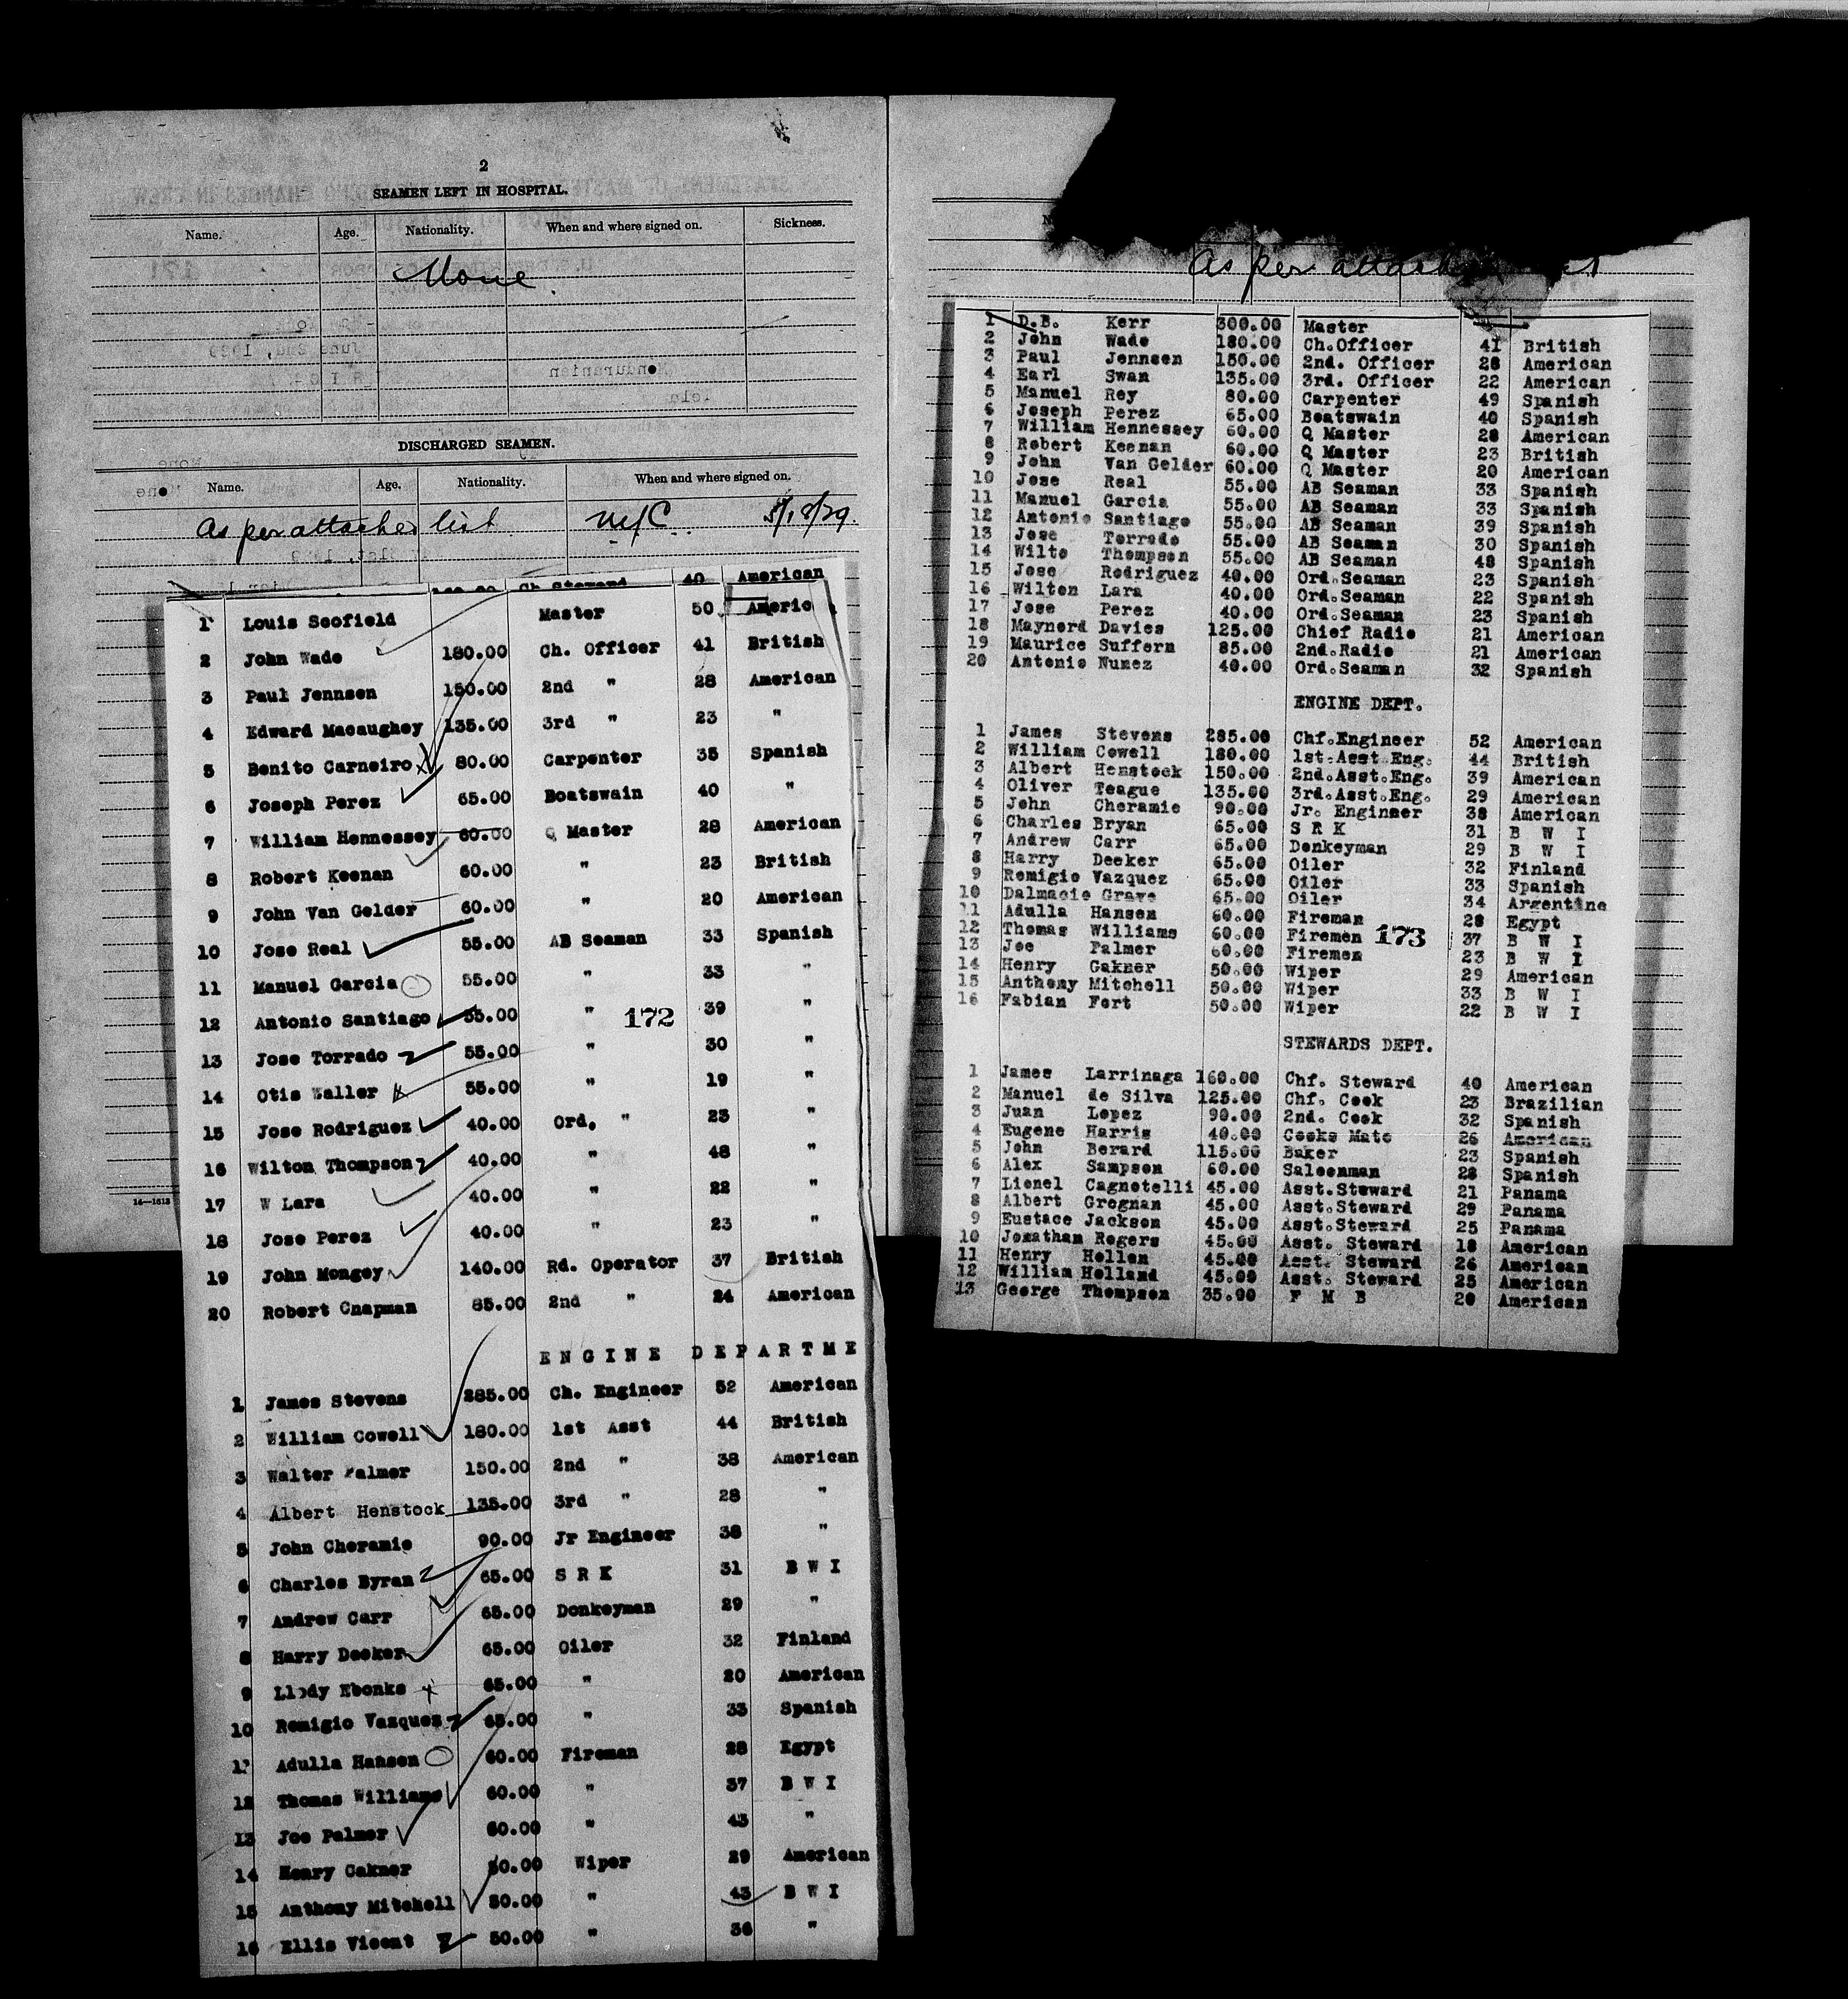 2
SEAMEN LEFT IN HOSPITAL.
Name. Age. Nationality. When and where signed on. Sickness.
None
DISCHARGED SEAMEN.
Name. Age. Nationality. When and where signed on.
As per attached list N.Y.C 5/18/29
Ch Steward 40 American
1 Louis Scofield Master 50 Americ
2 John Wade 180.00 Ch. Officer 41 British
3 Paul Jennsen 150.00 2nd " 28 American
4 Edward Macaughey 135.00 3rd " 23 "
5 Benito Carneiro 80.00 Carpenter 35 Spanish
6 Joseph Perez 65.00 Boatswain 40 "
7 William Hennessey 60.00 Q Master 28 American
8 Robert Keenan 60.00 " 23 British
9 John Van Gelder 60.00 " 20 American
10 Jose Real 55.00 AB Seaman 33 Spanish
11 Manuel Garcia 55.00 " 33 "
12 Antonio Santiago 55.00 " 172 39 "
13 Jose Torrado 55.00 " 30 "
14 Otis Waller 55.00 " 19 "
15 Jose Rodriguez 40.00 Ord. " 23 "
16 Wilton Thompson 40.00 " 48 "
17 W Lara 40.00 " 22 "
18 Jose Perez 40.00 " 23 "
19 John Mongey 140.00 Rd. Operator 37 British
20 Robert Cnapman 85.00 2nd " 24 American
ENGINE DEPARTME
1 James Stevens 285.00 Ch. Engineer 52 American
2 William Cowell 180.00 1st Asst 44 British
3 Walter Palmer 150.00 2nd " 38 American
4 Albert Henstock 135.00 3rd " 28 "
5 John Cheramie 90.00 Jr Engineer 38 "
6 Charles Byran 65.00 S R K 31 B W I
7 Andrew Carr 65.00 Donkeyman 29 "
8 Harry Decker 65.00 Oiler 32 Finland
9 Llody Ebonks 65.00 " 20 American
10 Remigio Vazquez 65.00 " 33 Spanish
11 Adulla Hansen 60.00 Fireman 28 Egypt
12 Thomas Williams 60.00 " 37 B W I
13 Joe Palmer 60.00 " 43 "
14 Henry Cakner 50.00 Wiper 29 American
15 Anthony Mitchell 50.00 " 43 B W I
16 Ellis Vicent 50.00 " 36 "
16—1613
As per attached
1 D.B. Kerr 300.00 Master
2 John Wade 180.00 Ch.Officer 41 British
3 Paul Jennsen 150.00 2nd. Officer 28 American
4 Earl Swan 135.00 3rd. Officer 22 American
5 Manuel Rey 80.00 Carpenter 49 Spanish
6 Joseph Perez 65.00 Boatswain 40 Spanish
7 William Hennessey 60.00 Q Master 28 American
8 Robert Keenan 60.00 Q Master 23 British
9 John Van Gelder 60.00 Q Master 20 American
10 Jose Real 55.00 AB Seaman 33 Spanish
11 Manuel Garcia 55.00 AB Seaman 33 Spanish
12 Antonio Santiago 55.00 AB Seaman 39 Spanish
13 Jose Torrado 55.00 AB Seaman 30 Spanish
14 Wilto Thompson 55.00 AB Seaman 48 Spanish
15 Jose Rodriguez 40.00 Ord.Seaman 23 Spanish
16 Wilton Lara 40.00 Ord.Seaman 22 Spanish
17 Jose Perez 40.00 Ord.Seaman 23 Spanish
18 Maynord Davies 125.00 Chief Radio 21 American
19 Maurice Suffern 85.00 2nd.Radio 21 American
20 Antonio Nunez 40.00 Ord.Seaman 32 Spanish
ENGINE DEPT.
1 James Stevens 285.00 Chf.Engineer 52 American
2 William Cowell 180.00 1st.Asst Eng. 44 British
3 Albert Henstock 150.00 2nd.Asst.Eng. 39 American
4 Oliver Teague 135.00 3rd.Asst.Eng. 29 American
5 John Cheramie 90.00 Jr. Engineer 38 American
6 Charles Bryan 65.00 S R K 31 B W I
7 Andrew Carr 65.00 Donkeyman 29 B W I
8 Harry Decker 65.00 Oiler 32 Finland
9 Remigio Vazquez 65.00 Oiler 33 Spanish
10 Dalmacio Grave 65.00 Oiler 34 Argentine
11 Adulla Hansen 60.00 Fireman 28 Egypt
12 Thomas Williams 60.00 Firemen 173 37 B W I
13 Joe Palmer 60.00 Firemen 23 B W I
14 Henry Gakner 50.00 Wiper 29 American
15 Anthony Mitchell 50.00 Wiper 33 B W I
16 Fabian Fort 50.00 Wiper 22 B W I
STEWARDS DEPT.
1 James Larrinaga 160.00 Chf. Steward 40 American
2 Manuel de Silva 125.00 Chf. Cook 23 Brazilian
3 Juan Lopez 90.00 2nd. Cook 32 Spanish
4 Eugene Harris 40.00 Cooks Mate 26 American
5 John Berard 115.00 Baker 23 Spanish
6 Alex Sampson 60.00 Saloonman 28 Spanish
7 Lionel Cagnotelli 45.00 Asst.Steward 21 Panama
8 Albert Grognan 45.00 Asst.Steward 29 Panama
9 Eustace Jackson 45.00 Asst.Steward 25 Panama
10 Jonathan Rogers 45.00 Asst. Steward 18 American
11 Henry Hollen 45.00 Asst. Steward 26 American
12 William Holland 45.00 Asst. Steward 25 American
13 George Thompson 35.00 F M B 20 American